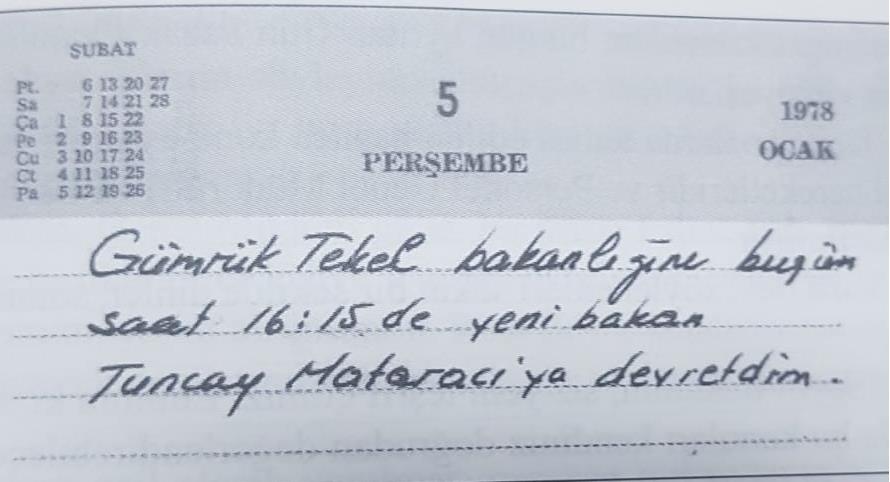 ŞUBAT
Pt. 6 13 20 27
Sa 7 14 21 28
Ça 1 8 15 22
Pe 2 9 16 23
Cu 3 10 17 24
Ct 4 11 18 25
Pa 5 12 19 26
5
PERŞEMBE
1978
OCAK
Gümrük Tekel bakanlığını bugün
saat 16:15 de yeni bakan
Tuncay Mataracı'ya devretdim.